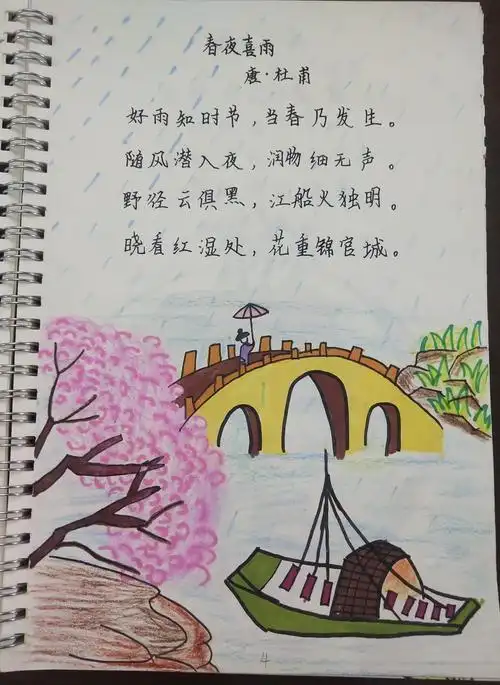 春夜喜雨
唐·杜甫
好雨知时节，当春乃发生。
随风潜入夜，润物细无声。
野径云俱黑，江船火独明。
晓看红湿处，花重锦官城。
4